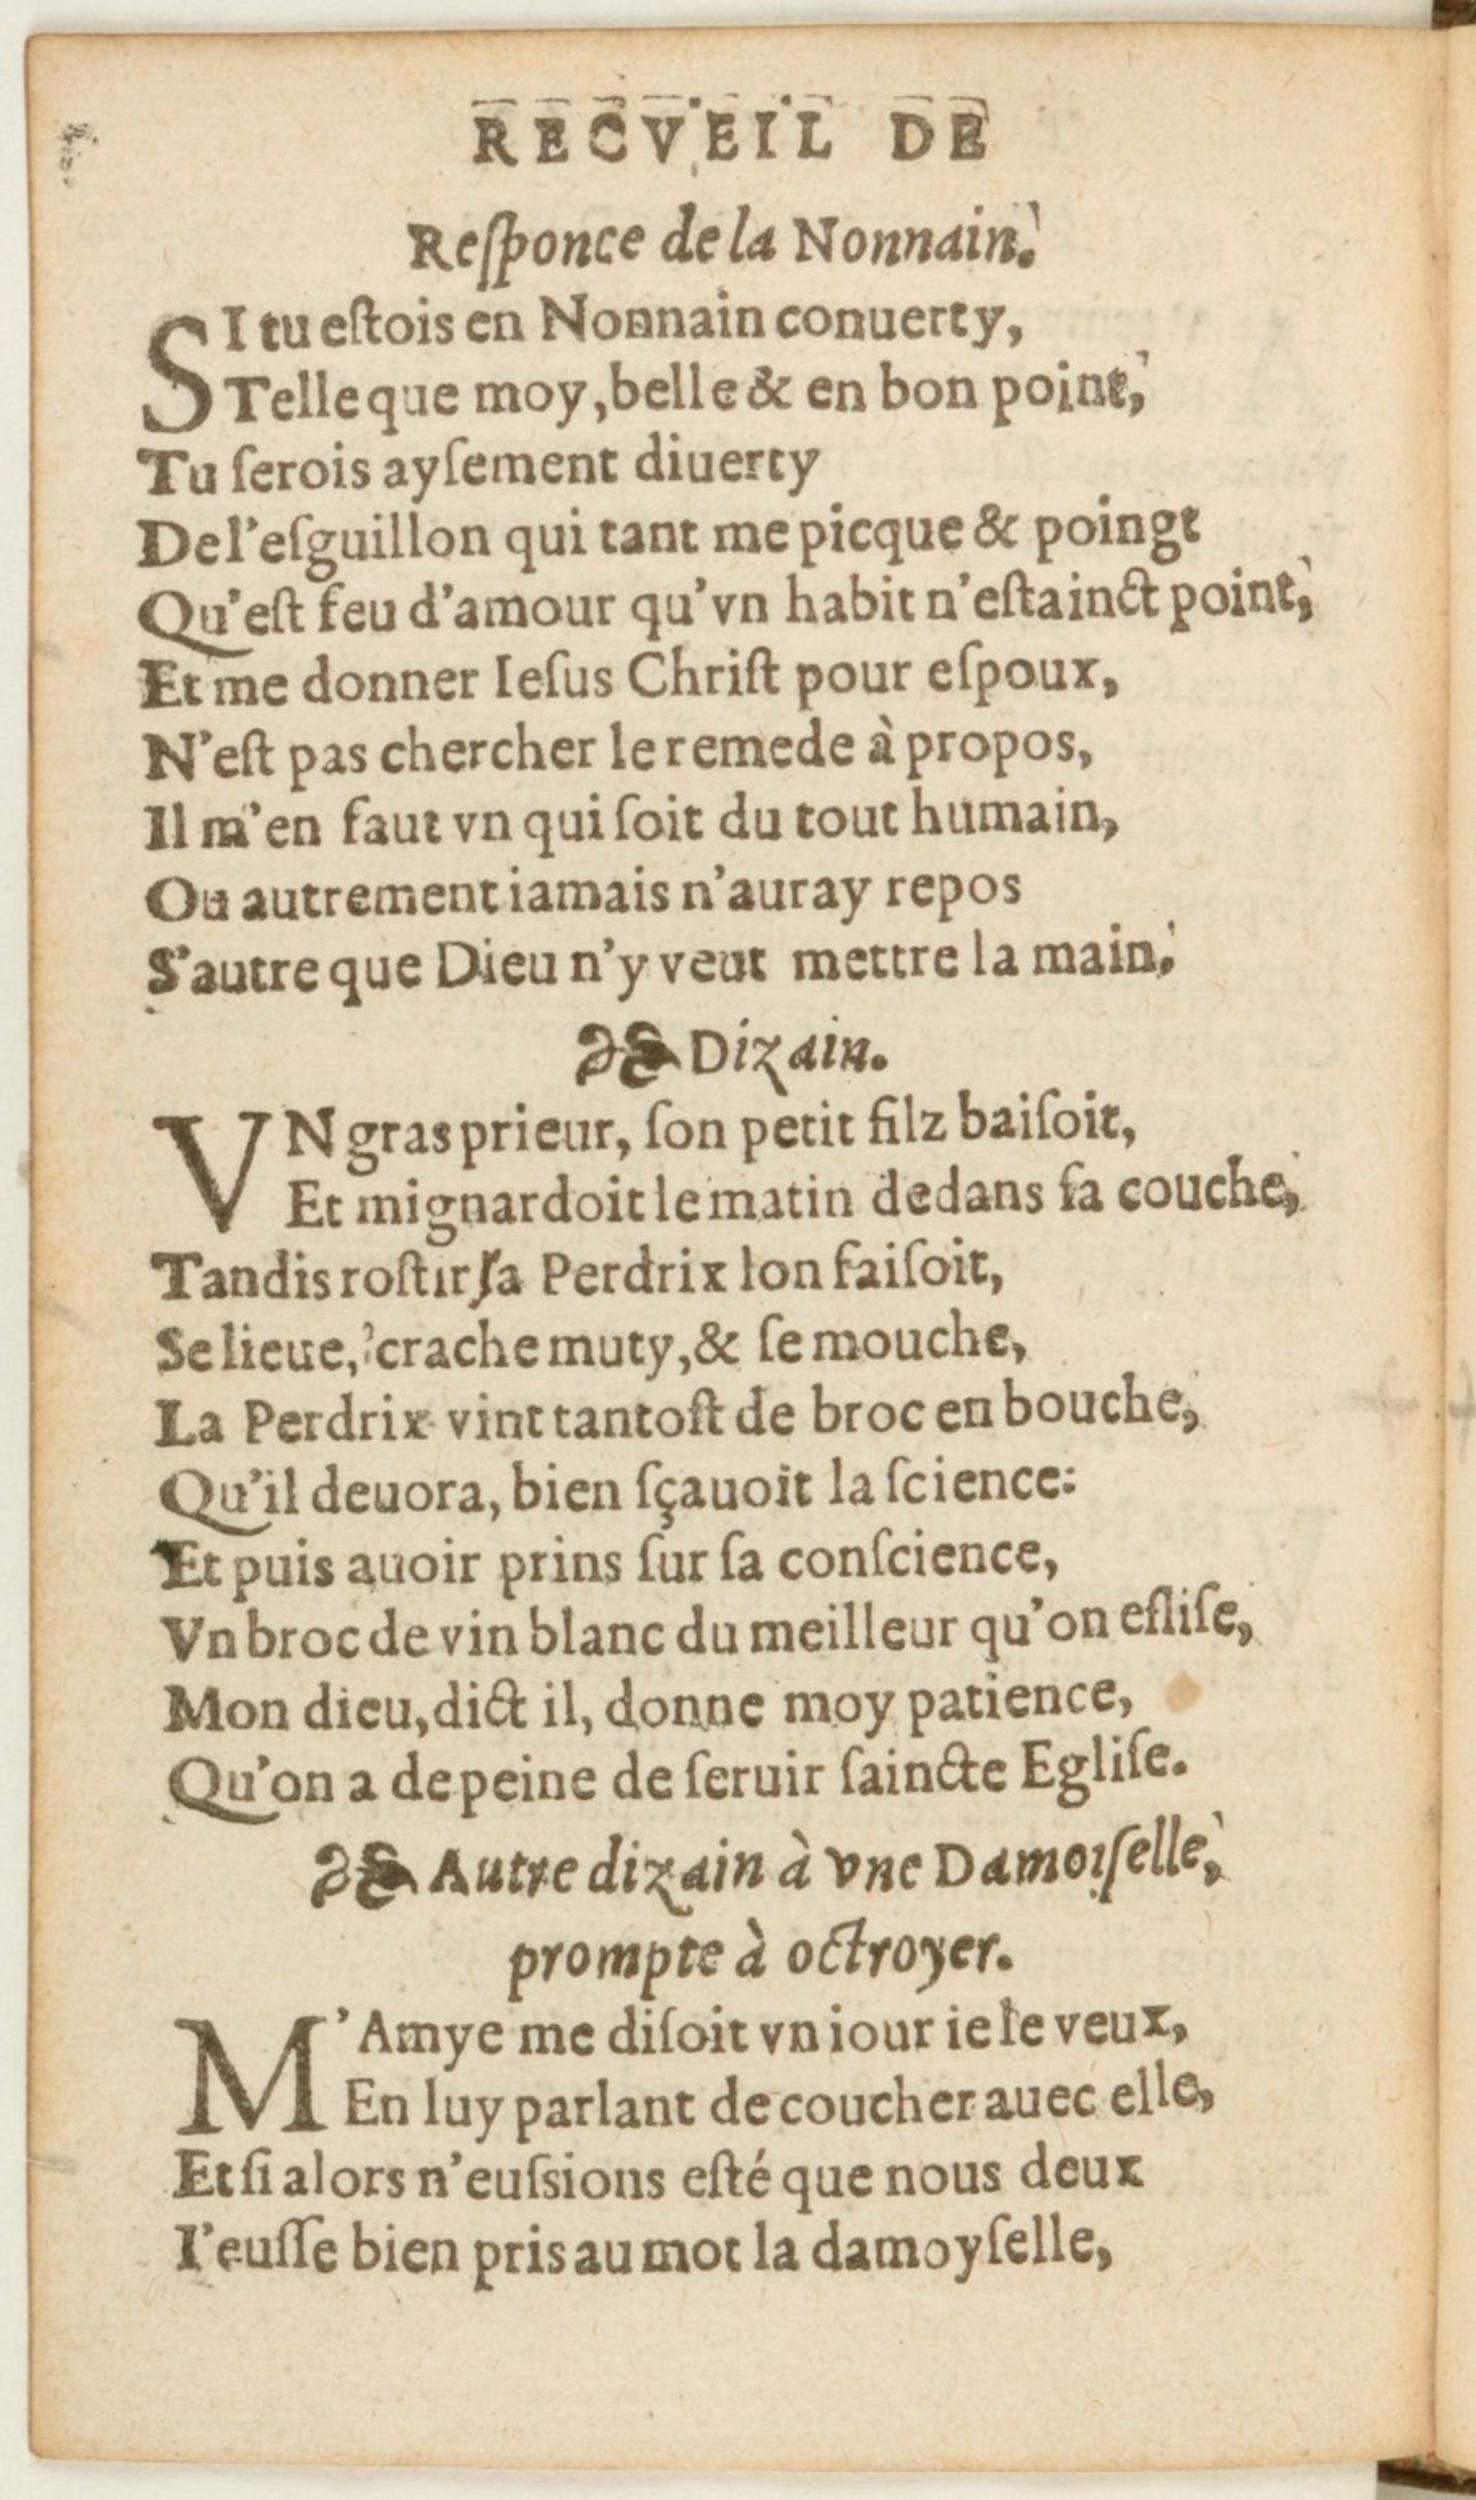 RECVEIL DE
Reſponce de la Nonnain.
SI tu eſtois en Nonnain conuerty,
Telle que moy, belle & en bon point,
Tu ſerois ayſement diuerty
De l'eſguillon qui tant me picque & poingt
Qu'eſt feu d'amour qu'vn habit n'eſtainct point,
Et me donner Ieſus Chriſt pour eſpoux,
N'eſt pas chercher le remede à propos,
Il m'en faut vn qui ſoit du tout humain,
Ou autrement iamais n'auray repos
S'autre que Dieu n'y veut mettre la main.
Dizain.
VN gras prieur, ſon petit filz baiſoit,
Et mignardoit le matin dedans ſa couche,
Tandis roſtir ſa Perdrix lon faiſoit,
Se lieue, crache muty, & ſe mouche,
La Perdrix vint tantoſt de broc en bouche,
Qu'il deuora, bien ſçauoit la ſcience:
Et puis auoir prins ſur ſa conſcience,
Vn broc de vin blanc du meilleur qu'on eſliſe,
Mon dieu, dict il, donne moy patience,
Qu'on a de peine de ſeruir ſaincte Egliſe.
Autre dizain à vne Damoiſelle,
prompte à octroyer.
M'Amye me diſoit vn iour ie le veux,
En luy parlant de coucher auec elle,
Et ſi alors n'euſsions eſté que nous deux
I'euſſe bien pris au mot la damoyſelle,